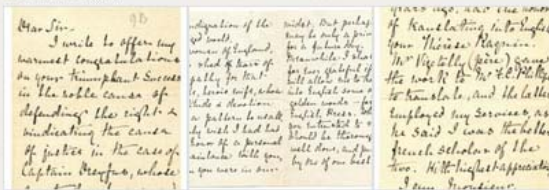 9B
Dear Sir.
I write to offer my
warmest congratulations
on your triumphant success
in the noble cause of
defending the right &
vindicating the cause
of justice in the case of
Captain Dreyfus, whose
indignation of the
world.
women of England,
had tears of
heroic wife, whose
devotion
a pattern to
wish I had had
honor of a personal
with you,
you were in our
midst. But perhaps
may be only a
for a future day.
Meanwhile I shall
very grateful if
will allow me to
into English some of
golden words - for
English Press.
you entrusted to
should be
well done, and
by one of our best
years ago, had the honor
of translating into English
your Thérèse Raquin.
Mr Vizetelly (père) gave
the work to Mr
to translate, and the latter
employed my services, as
he said I was the better
french scholar of the
two. With highest appreciation